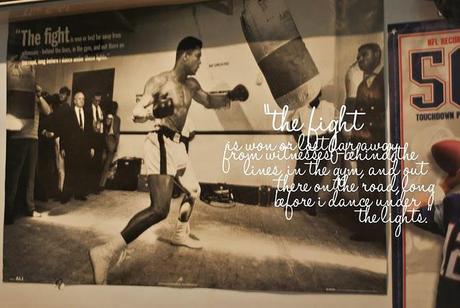 "The fight is won or lost far away from
witnesses - behind the lines, in the gym, and out there on
the road, long before I dance under those lights."
"the fight
is won or lost far away
from witnesses, behind the
lines, in the gym, and out
there on the road, long
before i dance under
the lights."
ALI
NFL RECOR
50
TOUCHDOWN P